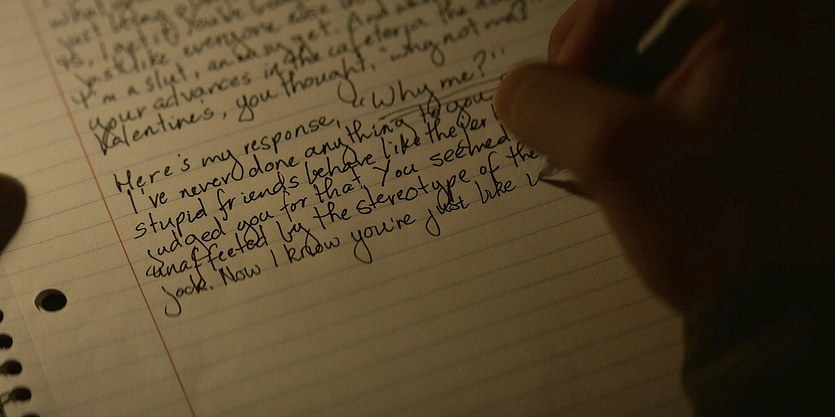 just like everyone else
I'm a slut, an easy get. And
your advances in the cafeteria the
Valentines, you thought, "why not me?"
Here's my response, "Why me?"
I've never done anything to you
stupid friends behave like the
judged you for that. You seemed
unaffected by the stereotype of the
jock. Now I know you're just like